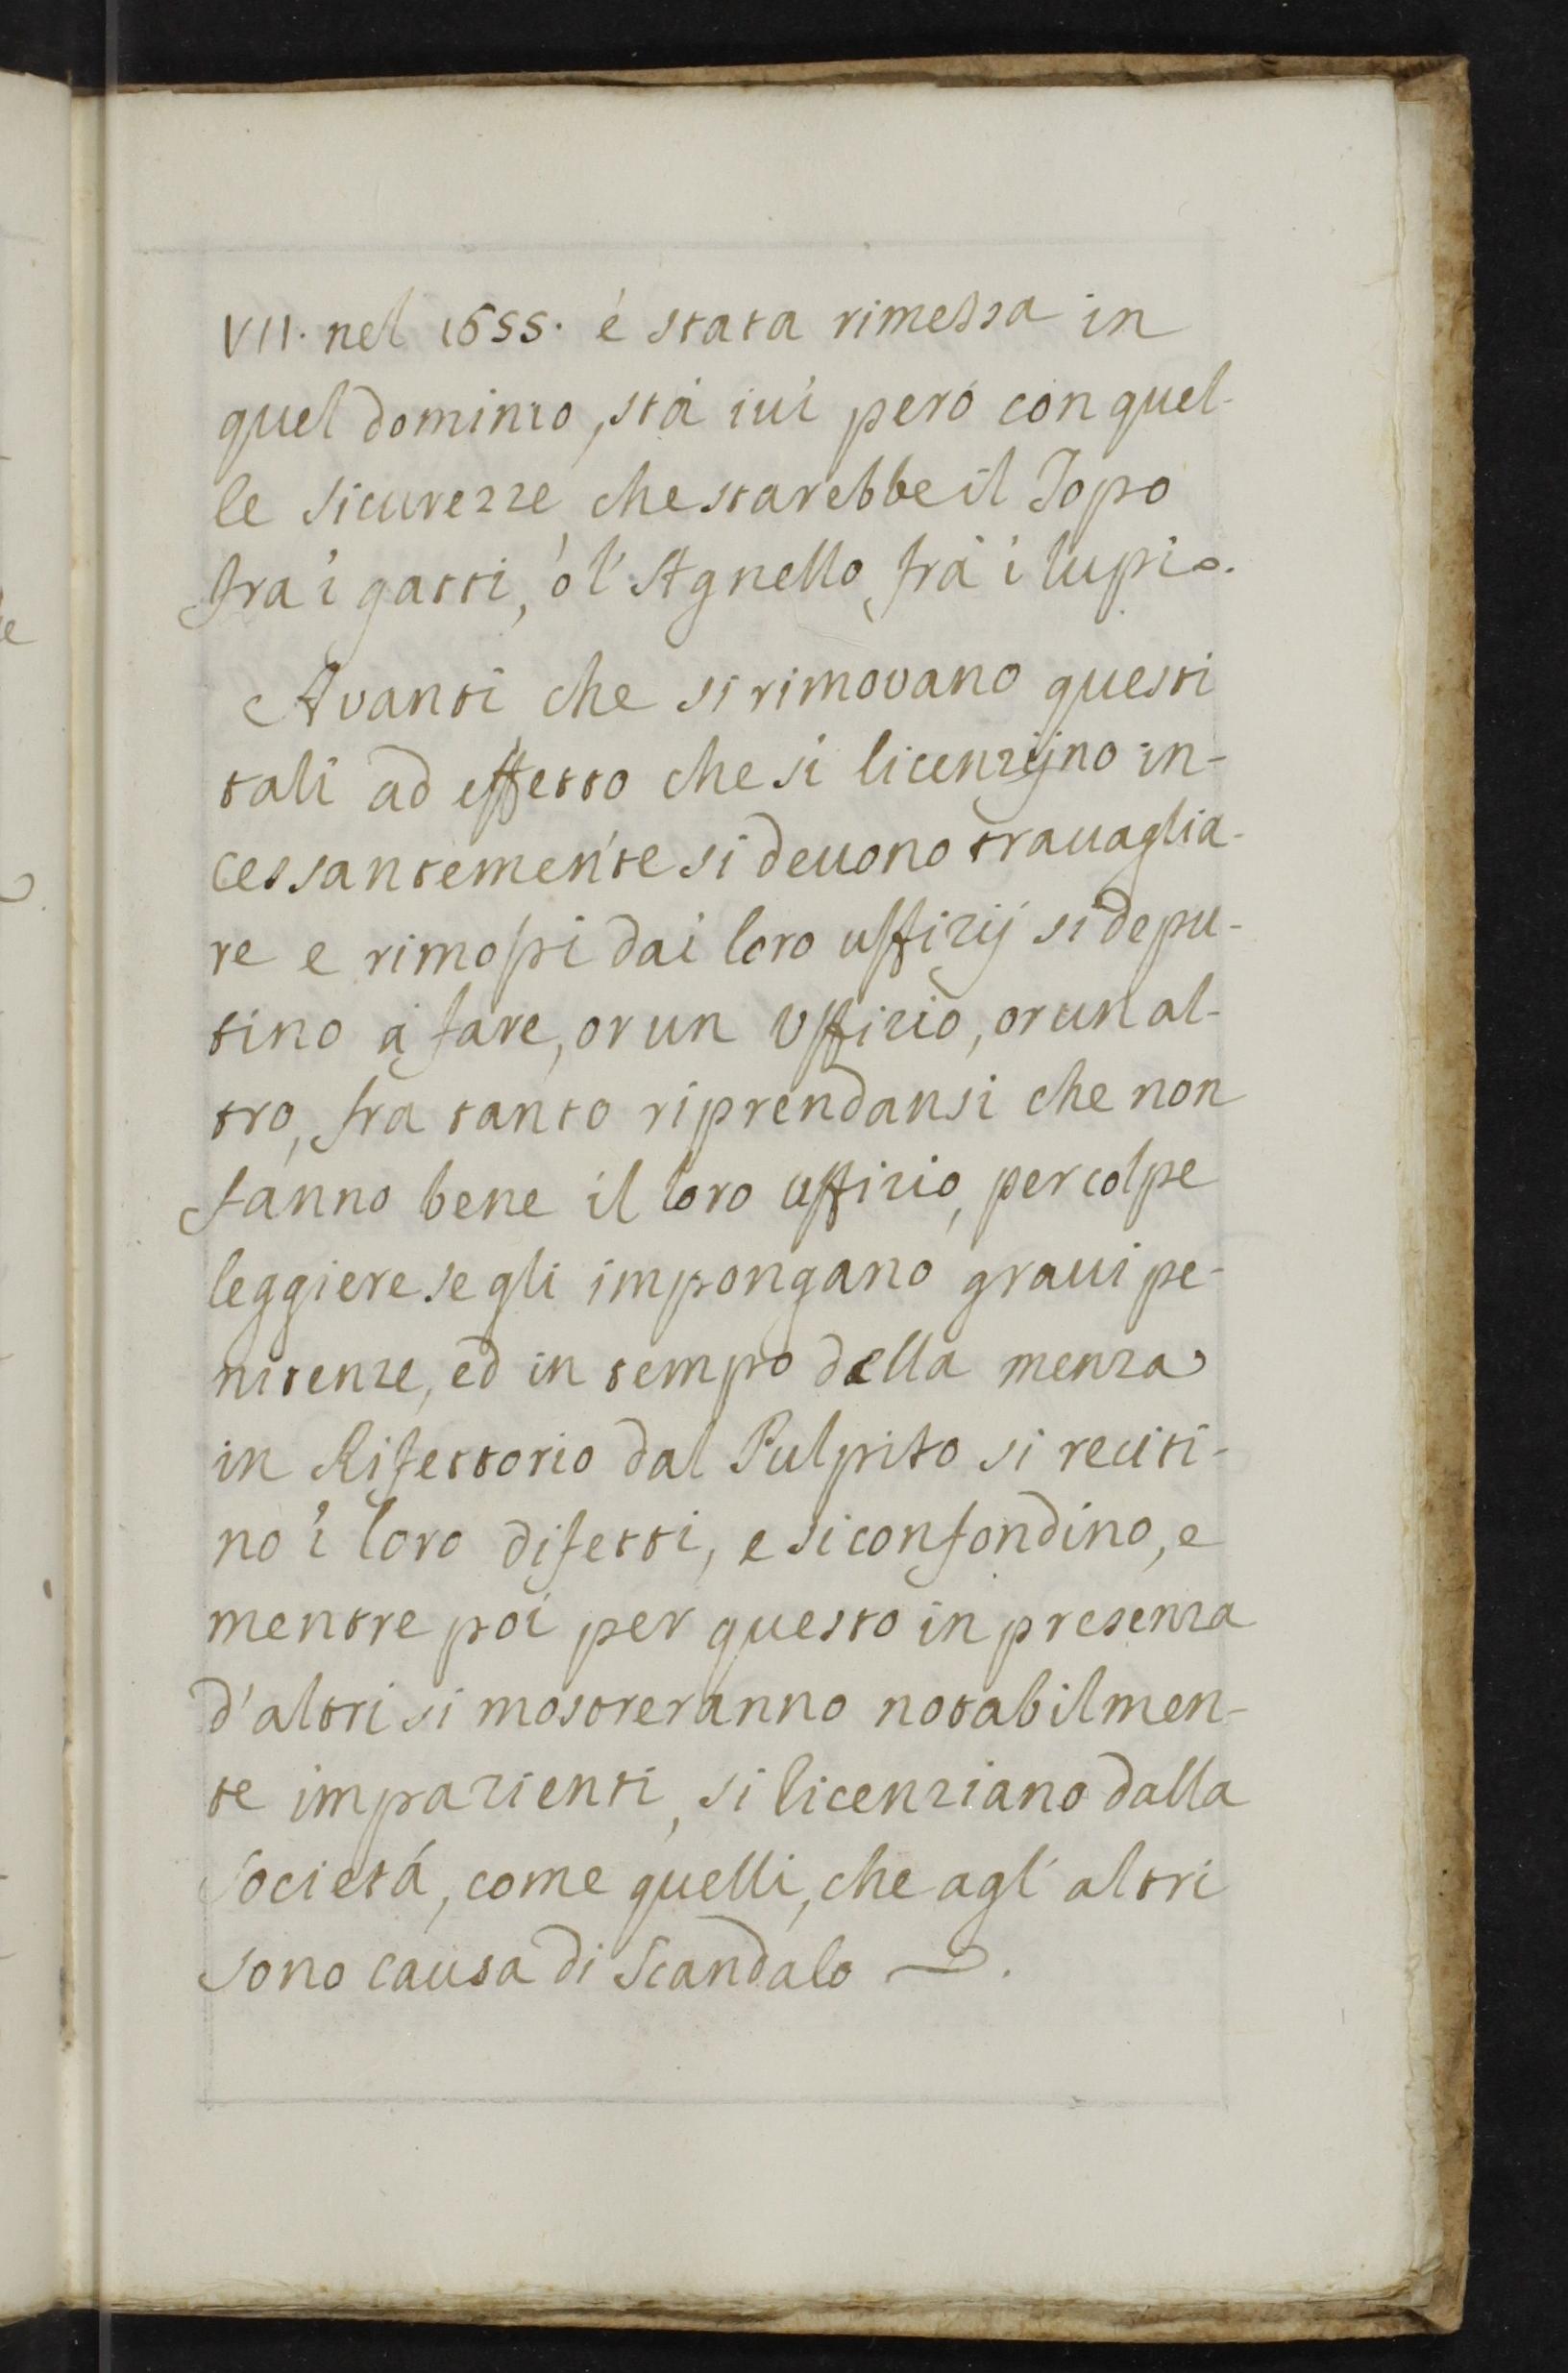 VII. nel 1655. é stata rimessa in
quel dominio, stá iui peró con quel-
le sicurezze che starebbe il Topo
fra i gatti, ó l'Agnello frá i lupi.
Avanti che si rimovano questi
tali ad effetto che si licenzijno in-
cessantemente si deuono trauaglia-
re e rimossi dai loro uffizij si depu-
tino á fare, or un Uffizio, or un al-
tro, fra tanto riprendansi che non
fanno bene il loro uffizio, per colpe
leggiere se gli impongano graui pe-
nitenze, ed in tempo della menza
in Rifettorio dal Pulpito si reciti-
no i loro difetti, e si confondino, e
mentre poi per questo in presenza
d'altri si mostreranno notabilmen-
te impazienti, si licenziano dalla
Societá, come quelli, che agl' altri
sono causa di Scandalo.